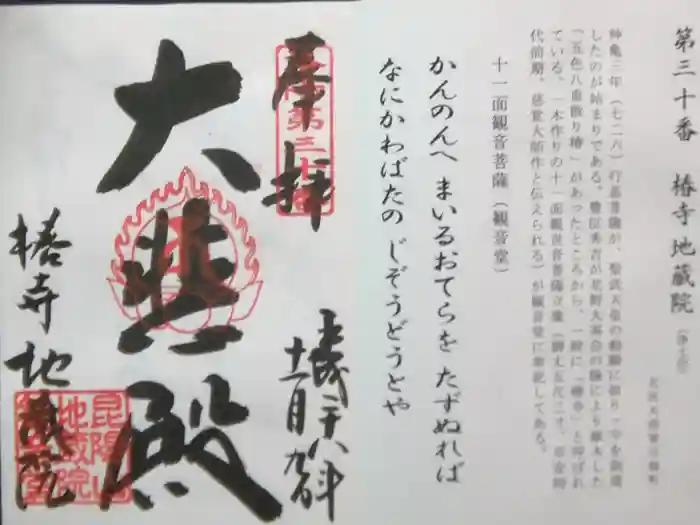 第三十番 椿寺地蔵院（浄土宗）
北区大将軍川端町
神亀三年（七二六）行基菩薩が、聖武天皇の勅願に依り一宇を創建
したのが始まりである。豊臣秀吉が北野大茶会の縁により献木した
「五色八重散り椿」があったところから、一般に「椿寺」と呼ばれ
ている。一木作りの十一面観世音菩薩立像（御丈五尺二寸、平安時
代前期、慈覚大師作と伝えられる）が観音堂に奉祀してある。
十一面観音菩薩（観音堂）
かんのんへ まいるおてらを たずぬれば
なにかわばたの じぞうどうとや
奉拝
第三十番
大悲殿
椿寺地蔵院
昆陽山地蔵院
二十八年
十一月九日